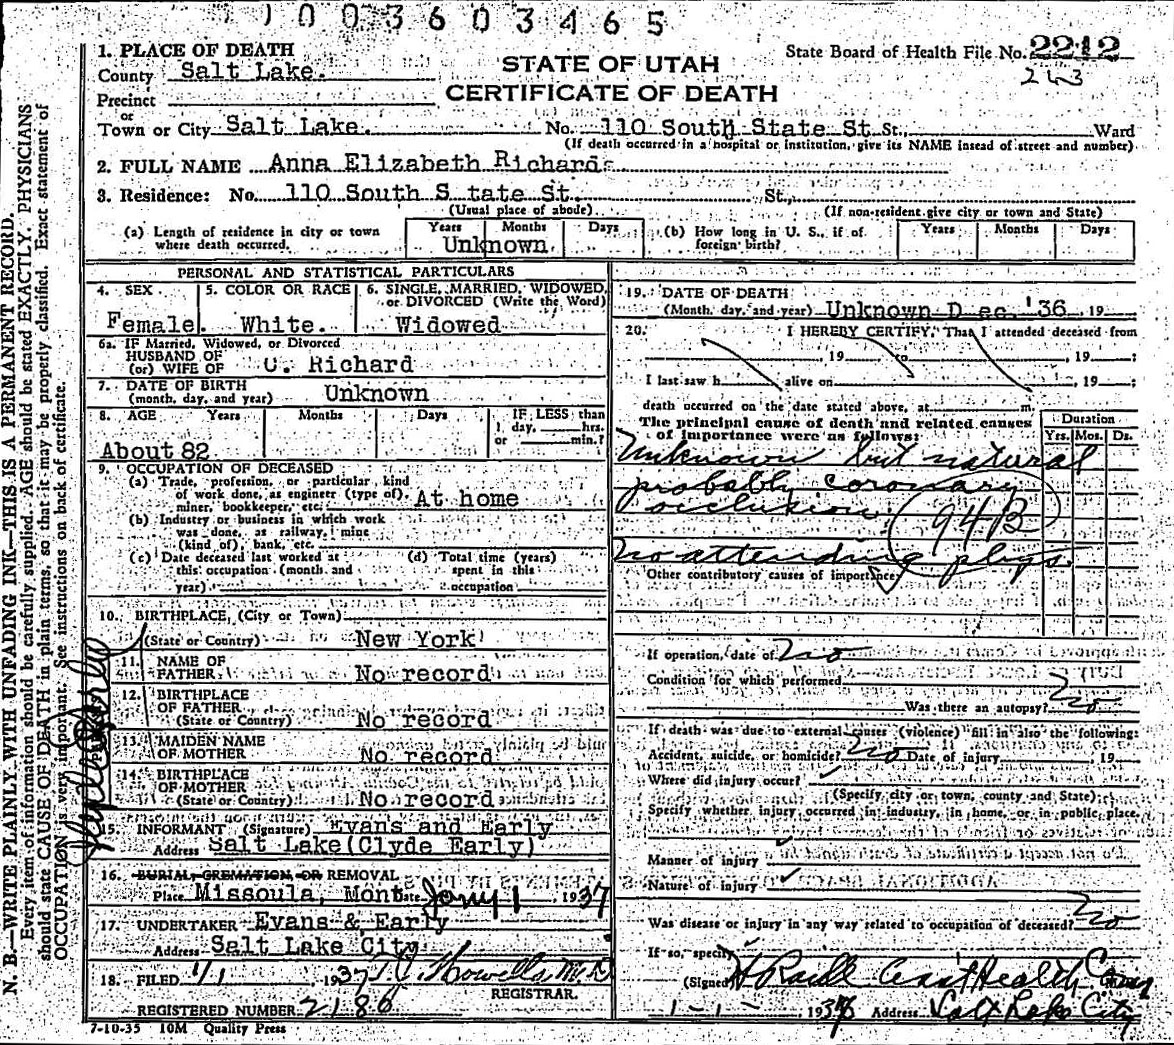 1003603465
1. PLACE OF DEATH
County Salt Lake.
Precinct
or
Town or City Salt Lake. No. 110 South State St St., Ward
(If death occurred in a hospital or institution, give its NAME insead of street and number)
STATE OF UTAH
CERTIFICATE OF DEATH
State Board of Health File No. 2212
243
2. FULL NAME Anna Elizabeth Richards
3. Residence: No. 110 South S tate St. St.,
(Usual place of abode) (If non-resident give city or town and State)
(a) Length of residence in city or town where death occurred. Years Months Days
Unknown
(b) How long in U. S., if of foreign birth? Years Months Days
PERSONAL AND STATISTICAL PARTICULARS
4. SEX
Female.
5. COLOR OR RACE
White.
6. SINGLE, MARRIED, WIDOWED,
or DIVORCED (Write the Word)
Widowed
6a. IF Married, Widowed, or Divorced
HUSBAND OF
(or) WIFE OF Richard
7. DATE OF BIRTH
(month, day, and year) Unknown
8. AGE Years Months Days IF LESS than
1 day, hrs.
or min.?
About 82
9. OCCUPATION OF DECEASED
(a) Trade, profession, or particular kind
of work done, as engineer (type of),
miner, bookkeeper, etc. At home
(b) Industry or business in which work
was done, as railway, mine
(kind of), bank, etc.
(c) Date deceased last worked at
this occupation (month and
year)
(d) Total time (years)
spent in this
occupation
10. BIRTHPLACE, (City or Town)
(State or Country) New York
11. NAME OF
FATHER No record
12. BIRTHPLACE
OF FATHER
(State or Country) No record
13. MAIDEN NAME
OF MOTHER No record
14. BIRTHPLACE
OF MOTHER
(State or Country) No record
15. INFORMANT (Signature) Evans and Early
Address Salt Lake (Clyde Early)
16. BURIAL, CREMATION, OR REMOVAL
Place Missoula, Mont Date Jany 1 1937
17. UNDERTAKER Evans & Early
Address Salt Lake City
18. FILED 1/1 1937 Howells M.D.
REGISTRAR.
REGISTERED NUMBER 2186
7-10-35 10M Quality Press
19. DATE OF DEATH
(Month, day, and year) Unknown D ec. '36 19
20. I HEREBY CERTIFY, That I attended deceased from
, 19 to , 19 ;
I last saw h alive on , 19 ;
death occurred on the date stated above, at m.
The principal cause of death and related causes
of importance were as follows:
Duration
Yrs. Mos. Ds.
Unknown but natural
probably coronary
occlusion. 94B
No attending phys.
Other contributory causes of importance
If operation, date of No
Condition for which performed
Was there an autopsy? No
If death was due to external causes (violence) fill in also the following:
Accident, suicide, or homicide? No Date of injury , 19
Where did injury occur?
(Specify city or town, county and State)
Specify whether injury occurred in industry, in home, or in public place,
Manner of injury
Nature of injury
Was disease or injury in any way related to occupation of deceased? No
If so, specify
(Signed) Health
1-1- 193 Address Salt Lake City
N. B.—WRITE PLAINLY, WITH UNFADING INK—THIS IS A PERMANENT RECORD.
Every item of information should be carefully supplied. AGE should be stated EXACTLY. PHYSICIANS
should state CAUSE OF DEATH in plain terms, so that it may be properly classified. Exact statement of
OCCUPATION is very important. See instructions on back of certificate.